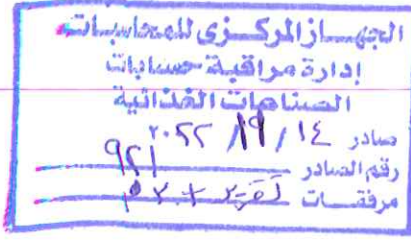 الجهاز المركزى للمحاسبات
إدارة مراقبة حسابات
الصناعات الغذائية
صادر ١٤ / / ٢٠٢٢
رقم الصادر ٩٢١
مرفقات